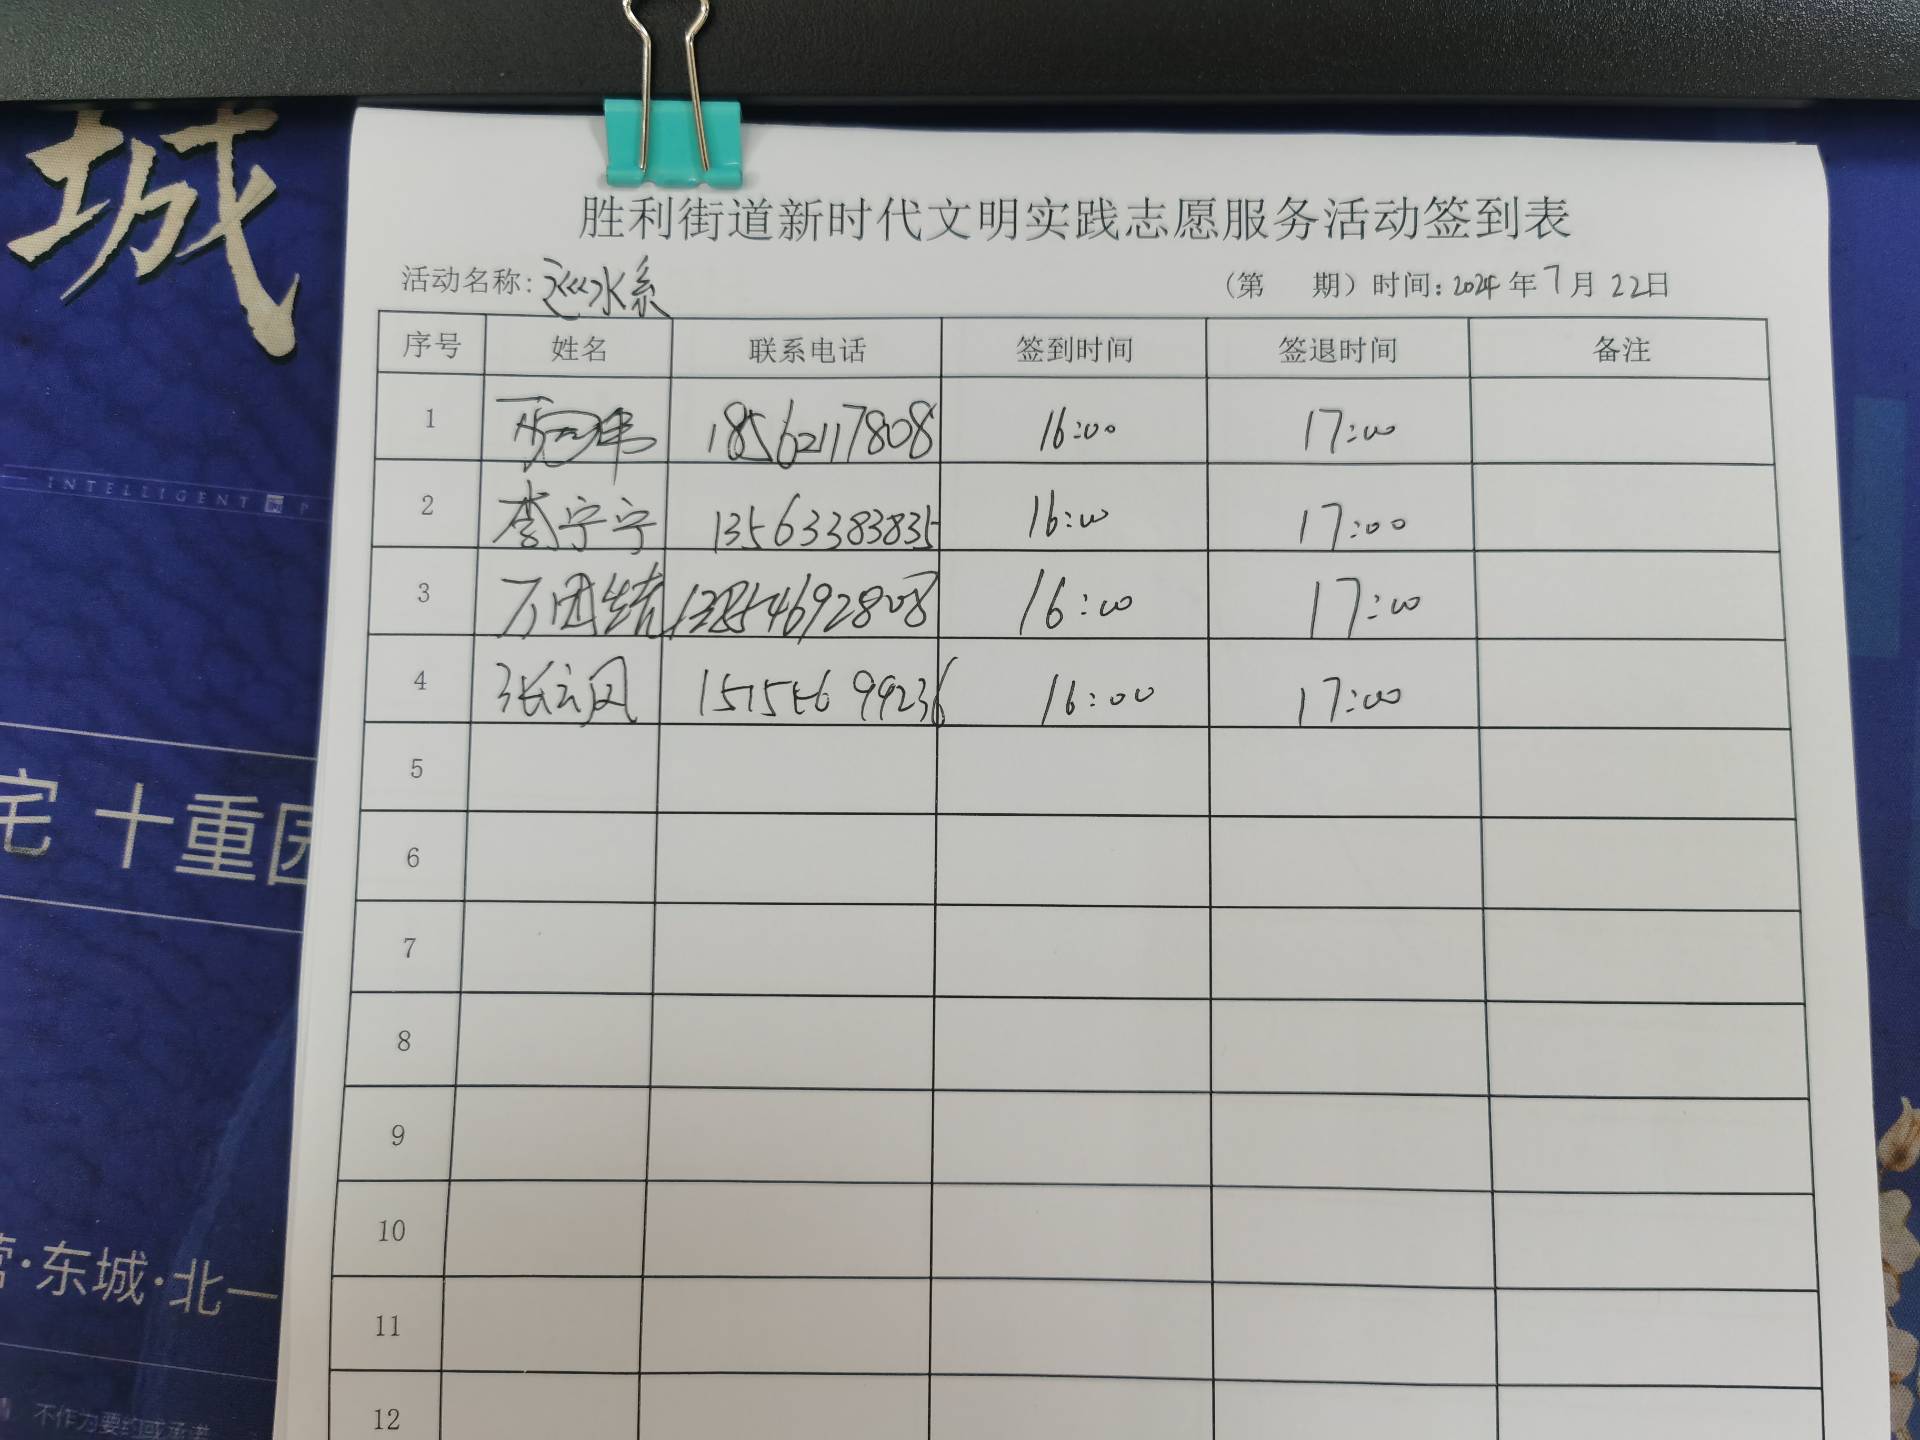 城
INTELLIGENT P
宅 十重园
营·东城·北一
不作为要约或承诺
胜利街道新时代文明实践志愿服务活动签到表
活动名称: 巡水系 (第 期) 时间: 2024 年 7 月 22 日
序号 姓名 联系电话 签到时间 签退时间 备注
1 18562117808 16:00 17:00
2 李宁宁 13563383835 16:00 17:00
3 万团结 13854692808 16:00 17:00
4 张云凤 15154699236 16:00 17:00
5
6
7
8
9
10
11
12